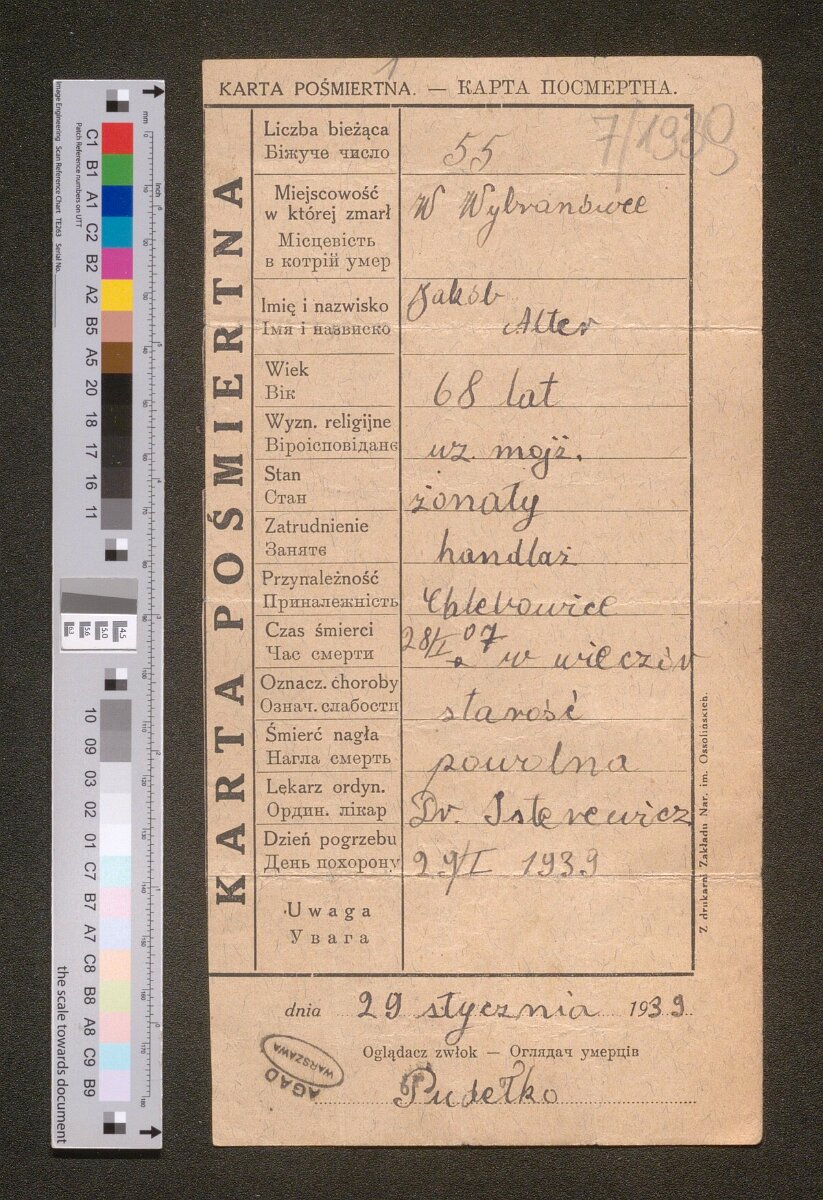 1
KARTA POŚMIERTNA. — КАРТА ПОСМЕРТНА.
7/1939
KARTA POŚMIERTNA
Liczba bieżąca
Біжуче число
55
Miejscowość
w której zmarł
Місцевість
в котрій умер
W Wybranówce
Imię i nazwisko
Імя і назвиско
Jakób
Alter
Wiek
Вік
68 lat
Wyzn. religijne
Віроісповіданє
wz. mojż.
Stan
Стан
żonaty
Zatrudnienie
Занятє
handlaż
Przynależność
Приналежність
Chlebowice
Czas śmierci
Час смерти
28/I 07
w wieczór
Oznacz. choroby
Означ. слабости
starość
Śmierć nagła
Нагла смерть
powolna
Lekarz ordyn.
Ордин. лікар
Dr. Isterewicz
Dzień pogrzebu
День похорону
29/I 1939
Uwaga
Увага
Z drukarni Zakładu Nar. im. Ossolińskich.
dnia 29 stycznia 1939.
Oglądacz zwłok — Оглядач умерців
Pudełko
AGAD
WARSZAWA
Image Engineering Scan Reference Chart TE263 Serial No.
Patch Reference numbers on UTT
mm
inch
C1
B1
A1
C2
B2
A2
B5
A5
20
18
17
16
11
10
09
03
02
01
C7
B7
A7
C8
B8
A8
C9
B9
the scale towards document